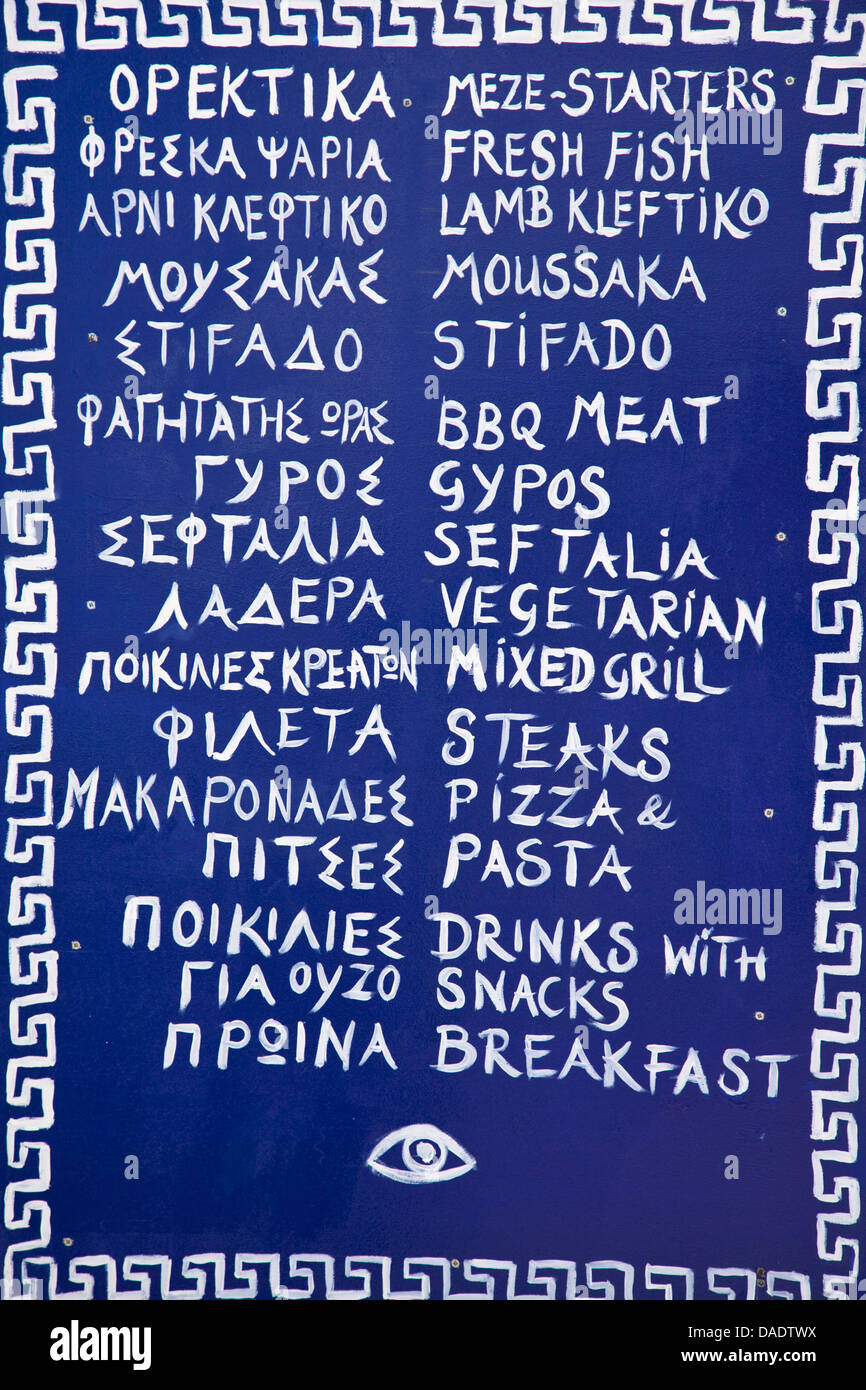 ΟΡΕΚΤΙΚΑ MEZE-STARTERS
ΦΡΕΣΚΑ ΨΑΡΙΑ FRESH FiSH
ΑΡΝΙ ΚΛΕΦΤΙΚΟ LAMB KLEFTiKO
ΜΟΥΣΑΚΑΣ MOUSSAKA
ΣΤΙFΑΔΟ STiFADO
ΦΑΓΗΤΑ ΤΗΣ ΩΡΑΣ BBQ MEAT
ΓΥΡΟΣ GYPOS
ΣΕΦΤΑΛΙΑ SEFTALiA
ΛΑΔΕΡΑ VEGETARiAN
ΠΟΙΚΙΛΙΕΣ ΚΡΕΑΤΩΝ MiXED GRiLL
ΦΙΛΕΤΑ STEAKS
ΜΑΚΑΡΟΝΑΔΕΣ PiZZA &
ΠΙΤΣΕΣ PASTA
ΠΟΙΚΙΛΙΕΣ DRiNKS WiTH
ΓΙΑ ΟΥΖΟ SNACKS
ΠΡΩΙΝΑ BREAKFAST
alamy stock photo
DADTWX
www.alamy.com